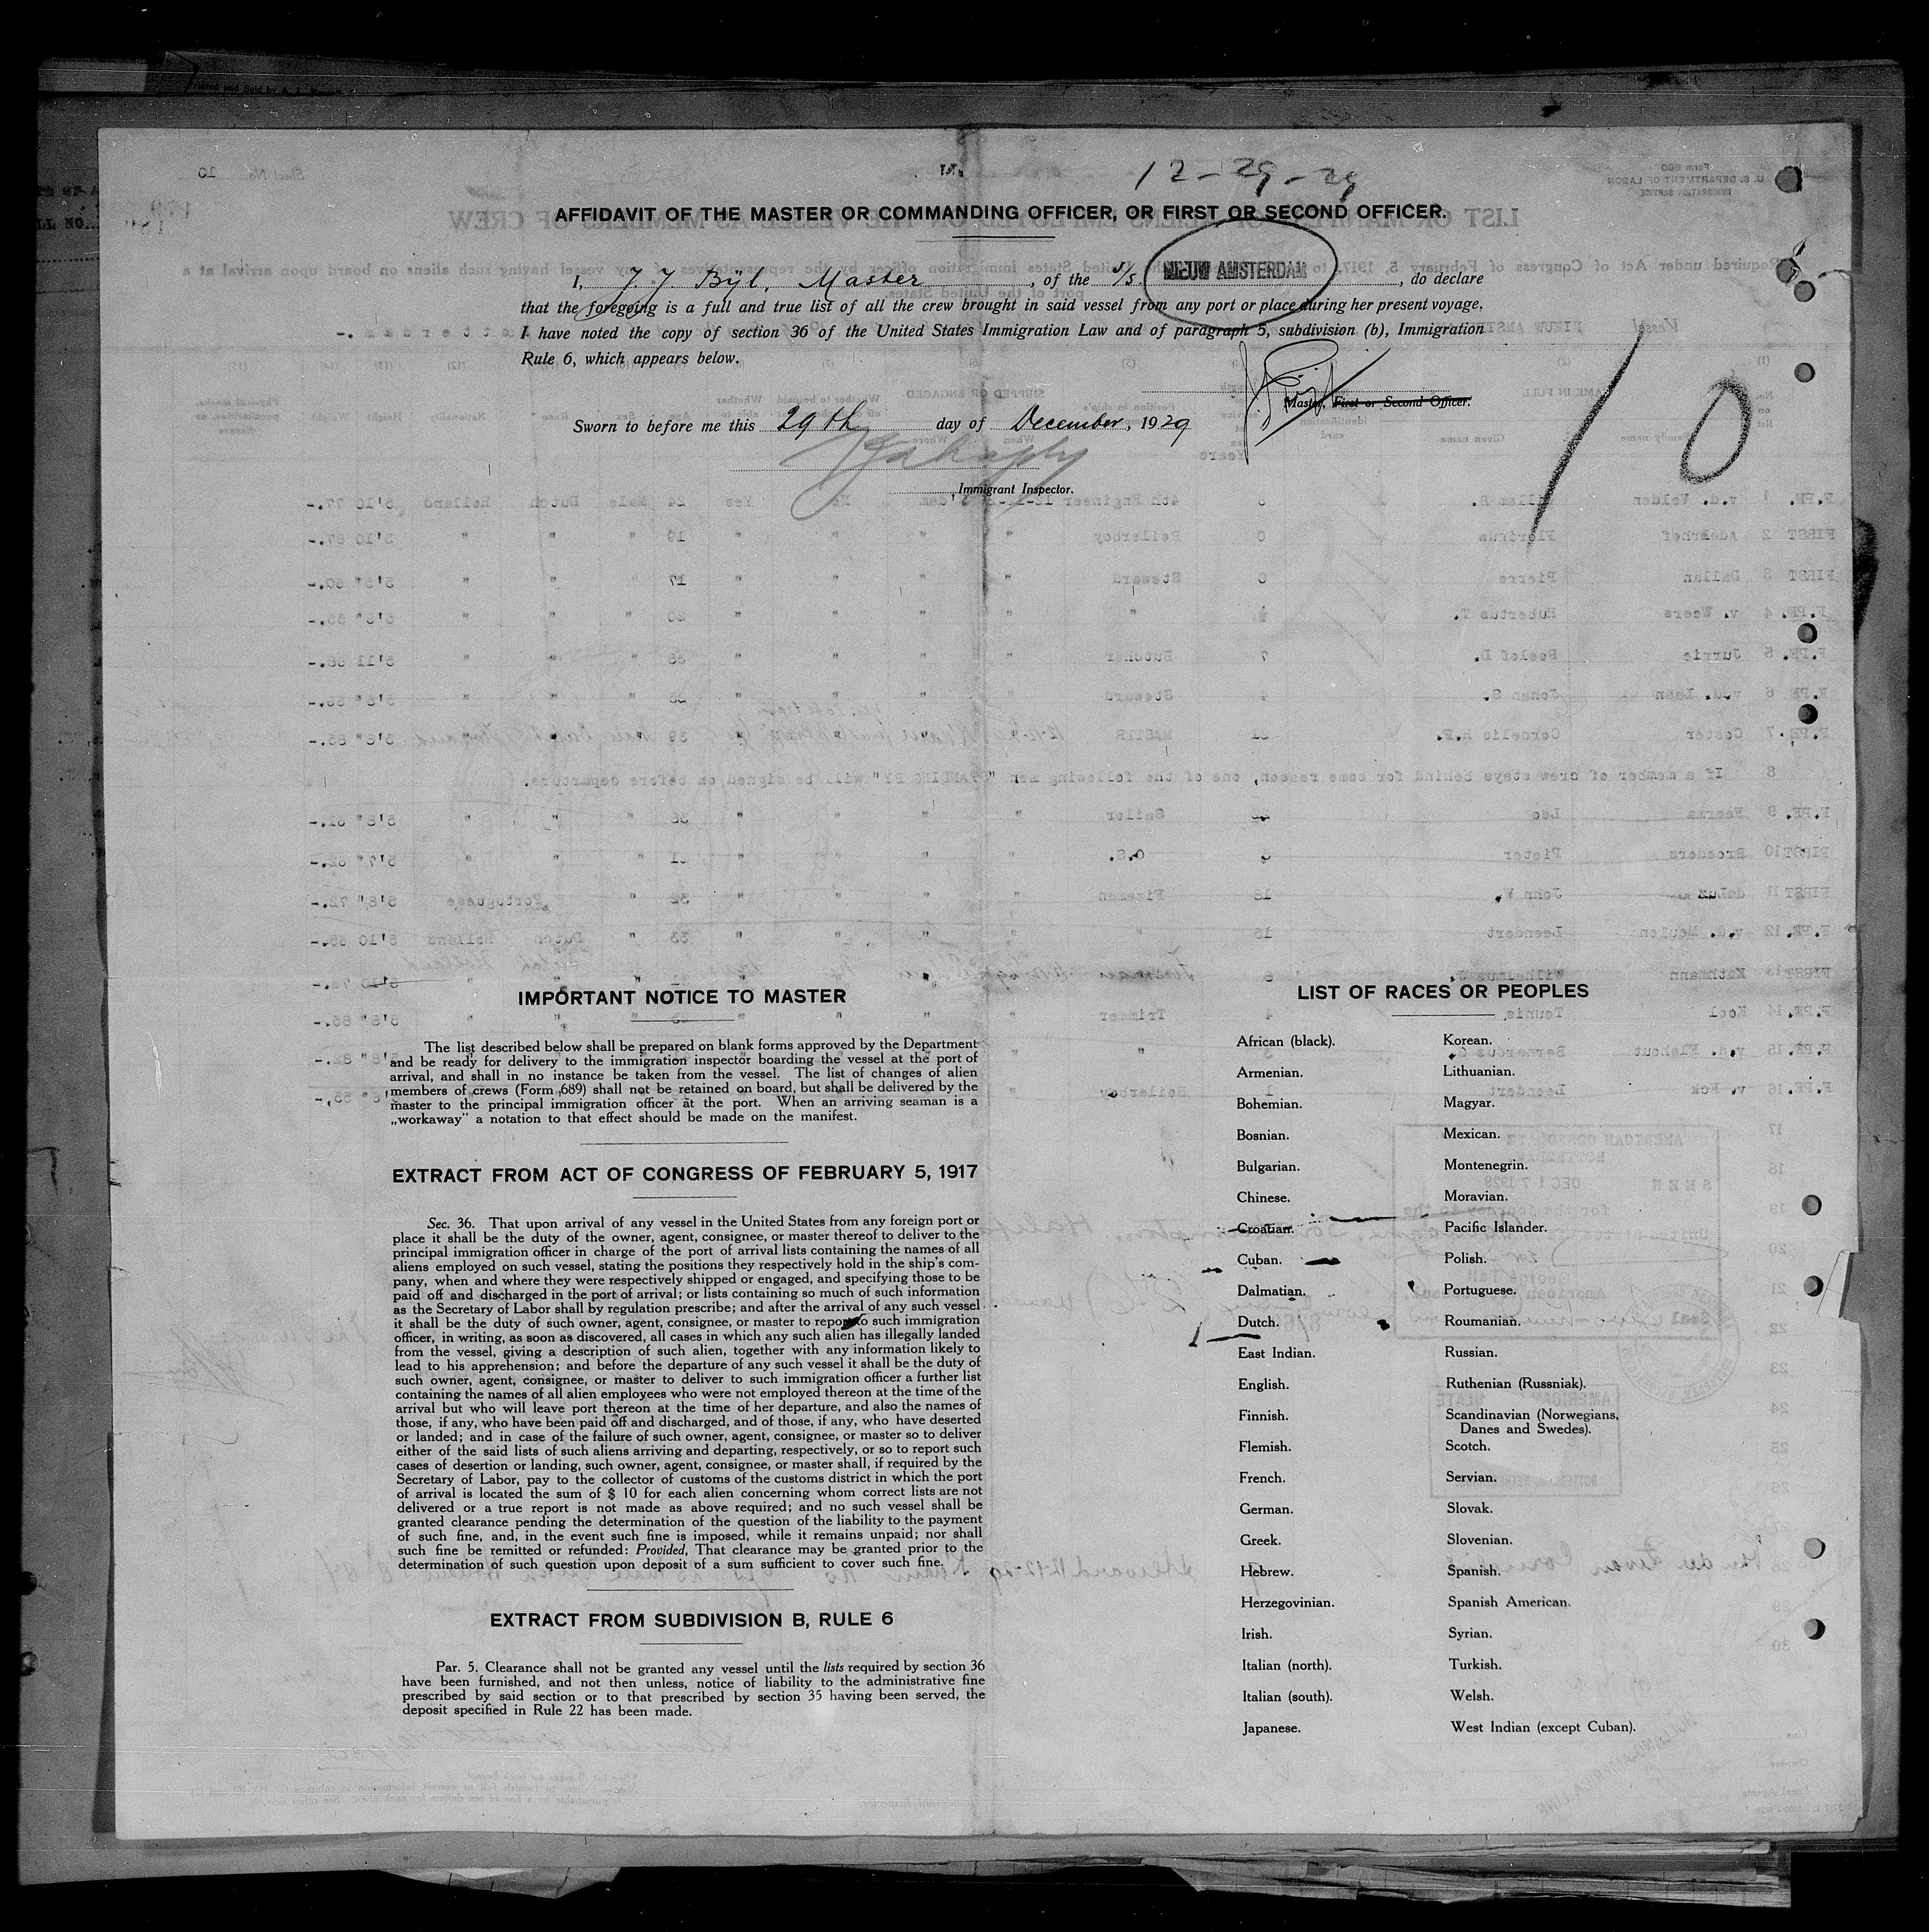 12-29-29
AFFIDAVIT OF THE MASTER OR COMMANDING OFFICER, OR FIRST OR SECOND OFFICER.
I, J. J. Bijl, Master, of the s/s. NIEUW AMSTERDAM, do declare
that the foregoing is a full and true list of all the crew brought in said vessel from any port or place during her present voyage.
I have noted the copy of section 36 of the United States Immigration Law and of paragraph 5, subdivision (b), Immigration
Rule 6, which appears below.
Master, First or Second Officer.
Sworn to before me this 29th day of December, 1929
Immigrant Inspector.
10
IMPORTANT NOTICE TO MASTER
The list described below shall be prepared on blank forms approved by the Department
and be ready for delivery to the immigration inspector boarding the vessel at the port of
arrival, and shall in no instance be taken from the vessel. The list of changes of alien
members of crews (Form 689) shall not be retained on board, but shall be delivered by the
master to the principal immigration officer at the port. When an arriving seaman is a
„workaway” a notation to that effect should be made on the manifest.
EXTRACT FROM ACT OF CONGRESS OF FEBRUARY 5, 1917
Sec. 36. That upon arrival of any vessel in the United States from any foreign port or
place it shall be the duty of the owner, agent, consignee, or master thereof to deliver to the
principal immigration officer in charge of the port of arrival lists containing the names of all
aliens employed on such vessel, stating the positions they respectively hold in the ship's com-
pany, when and where they were respectively shipped or engaged, and specifying those to be
paid off and discharged in the port of arrival; or lists containing so much of such information
as the Secretary of Labor shall by regulation prescribe; and after the arrival of any such vessel
it shall be the duty of such owner, agent, consignee, or master to report to such immigration
officer, in writing, as soon as discovered, all cases in which any such alien has illegally landed
from the vessel, giving a description of such alien, together with any information likely to
lead to his apprehension; and before the departure of any such vessel it shall be the duty of
such owner, agent, consignee, or master to deliver to such immigration officer a further list
containing the names of all alien employees who were not employed thereon at the time of the
arrival but who will leave port thereon at the time of her departure, and also the names of
those, if any, who have been paid off and discharged, and of those, if any, who have deserted
or landed; and in case of the failure of such owner, agent, consignee, or master so to deliver
either of the said lists of such aliens arriving and departing, respectively, or so to report such
cases of desertion or landing, such owner, agent, consignee, or master shall, if required by the
Secretary of Labor, pay to the collector of customs of the customs district in which the port
of arrival is located the sum of $ 10 for each alien concerning whom correct lists are not
delivered or a true report is not made as above required; and no such vessel shall be
granted clearance pending the determination of the question of the liability to the payment
of such fine, and, in the event such fine is imposed, while it remains unpaid; nor shall
such fine be remitted or refunded: Provided, That clearance may be granted prior to the
determination of such question upon deposit of a sum sufficient to cover such fine.
EXTRACT FROM SUBDIVISION B, RULE 6
Par. 5. Clearance shall not be granted any vessel until the lists required by section 36
have been furnished, and not then unless, notice of liability to the administrative fine
prescribed by said section or to that prescribed by section 35 having been served, the
deposit specified in Rule 22 has been made.
LIST OF RACES OR PEOPLES
African (black).
Armenian.
Bohemian.
Bosnian.
Bulgarian.
Chinese.
Croatian.
Cuban.
Dalmatian.
Dutch.
East Indian.
English.
Finnish.
Flemish.
French.
German.
Greek.
Hebrew.
Herzegovinian.
Irish.
Italian (north).
Italian (south).
Japanese.
Korean.
Lithuanian.
Magyar.
Mexican.
Montenegrin.
Moravian.
Pacific Islander.
Polish.
Portuguese.
Roumanian.
Russian.
Ruthenian (Russniak).
Scandinavian (Norwegians,
Danes and Swedes).
Scotch.
Servian.
Slovak.
Slovenian.
Spanish.
Spanish American.
Syrian.
Turkish.
Welsh.
West Indian (except Cuban).